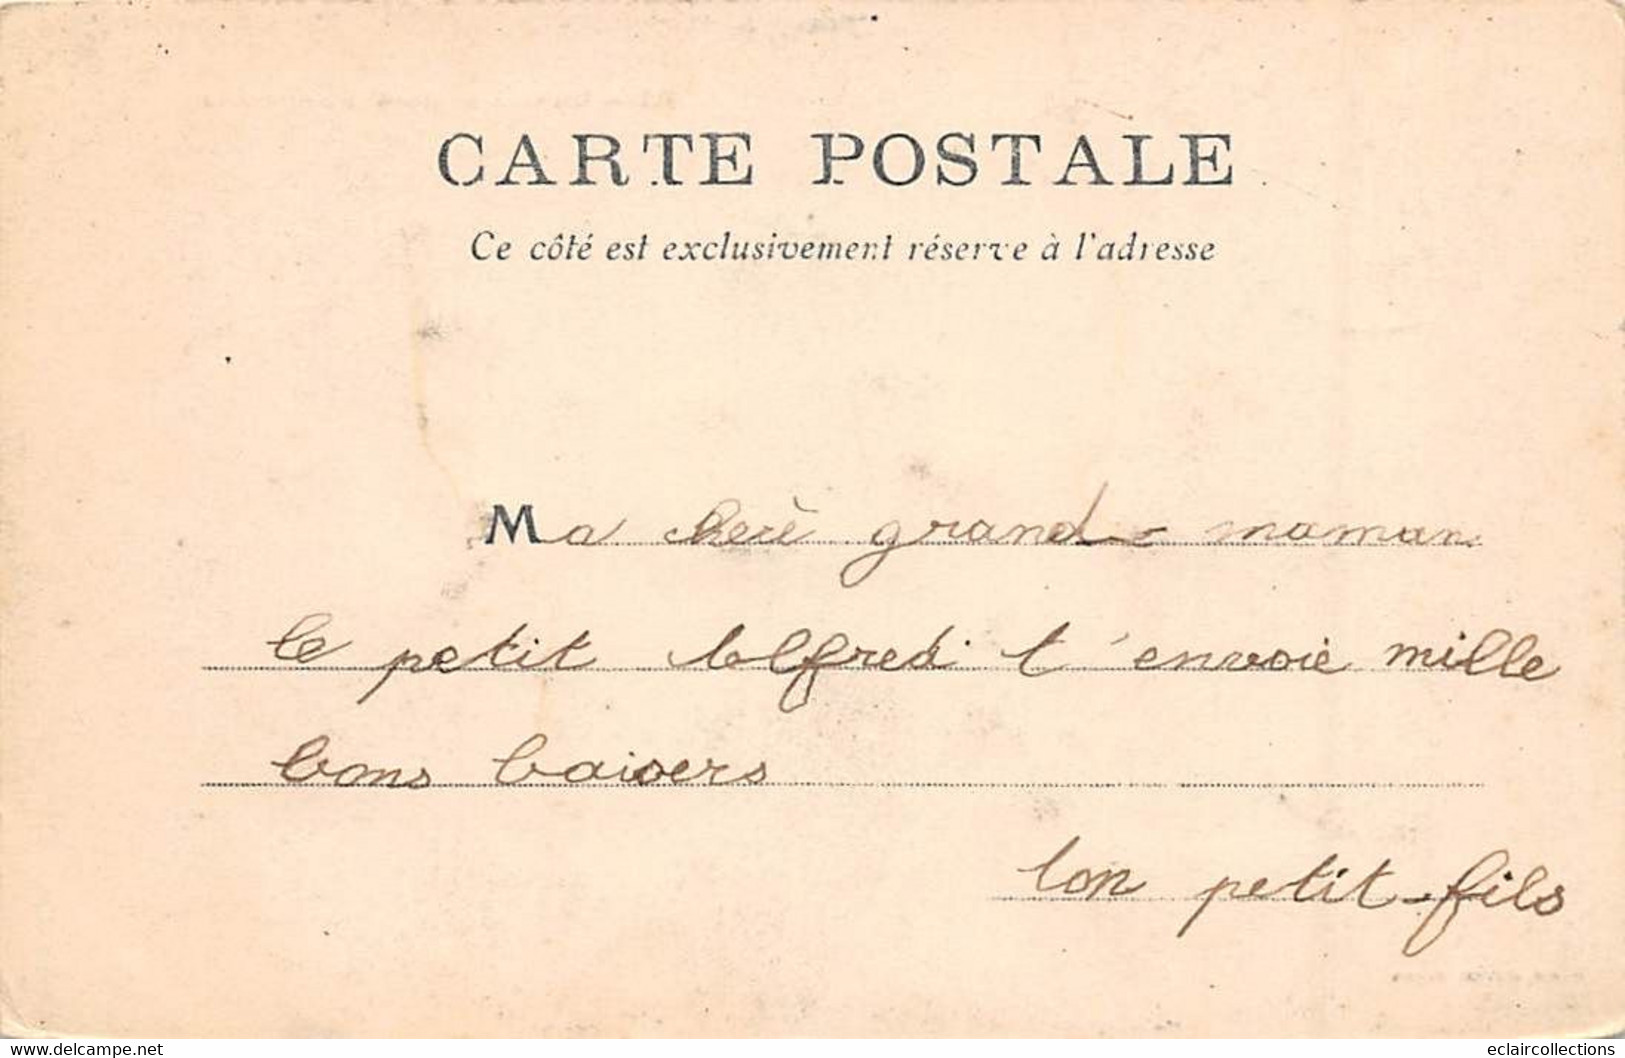 CARTE POSTALE
Ce côté est exclusivement réservé à l'adresse
Ma cherè grand-maman
le petit Alfred t'envoie mille
bons baisers
ton petit-fils
delcampe.net
eclaircollections